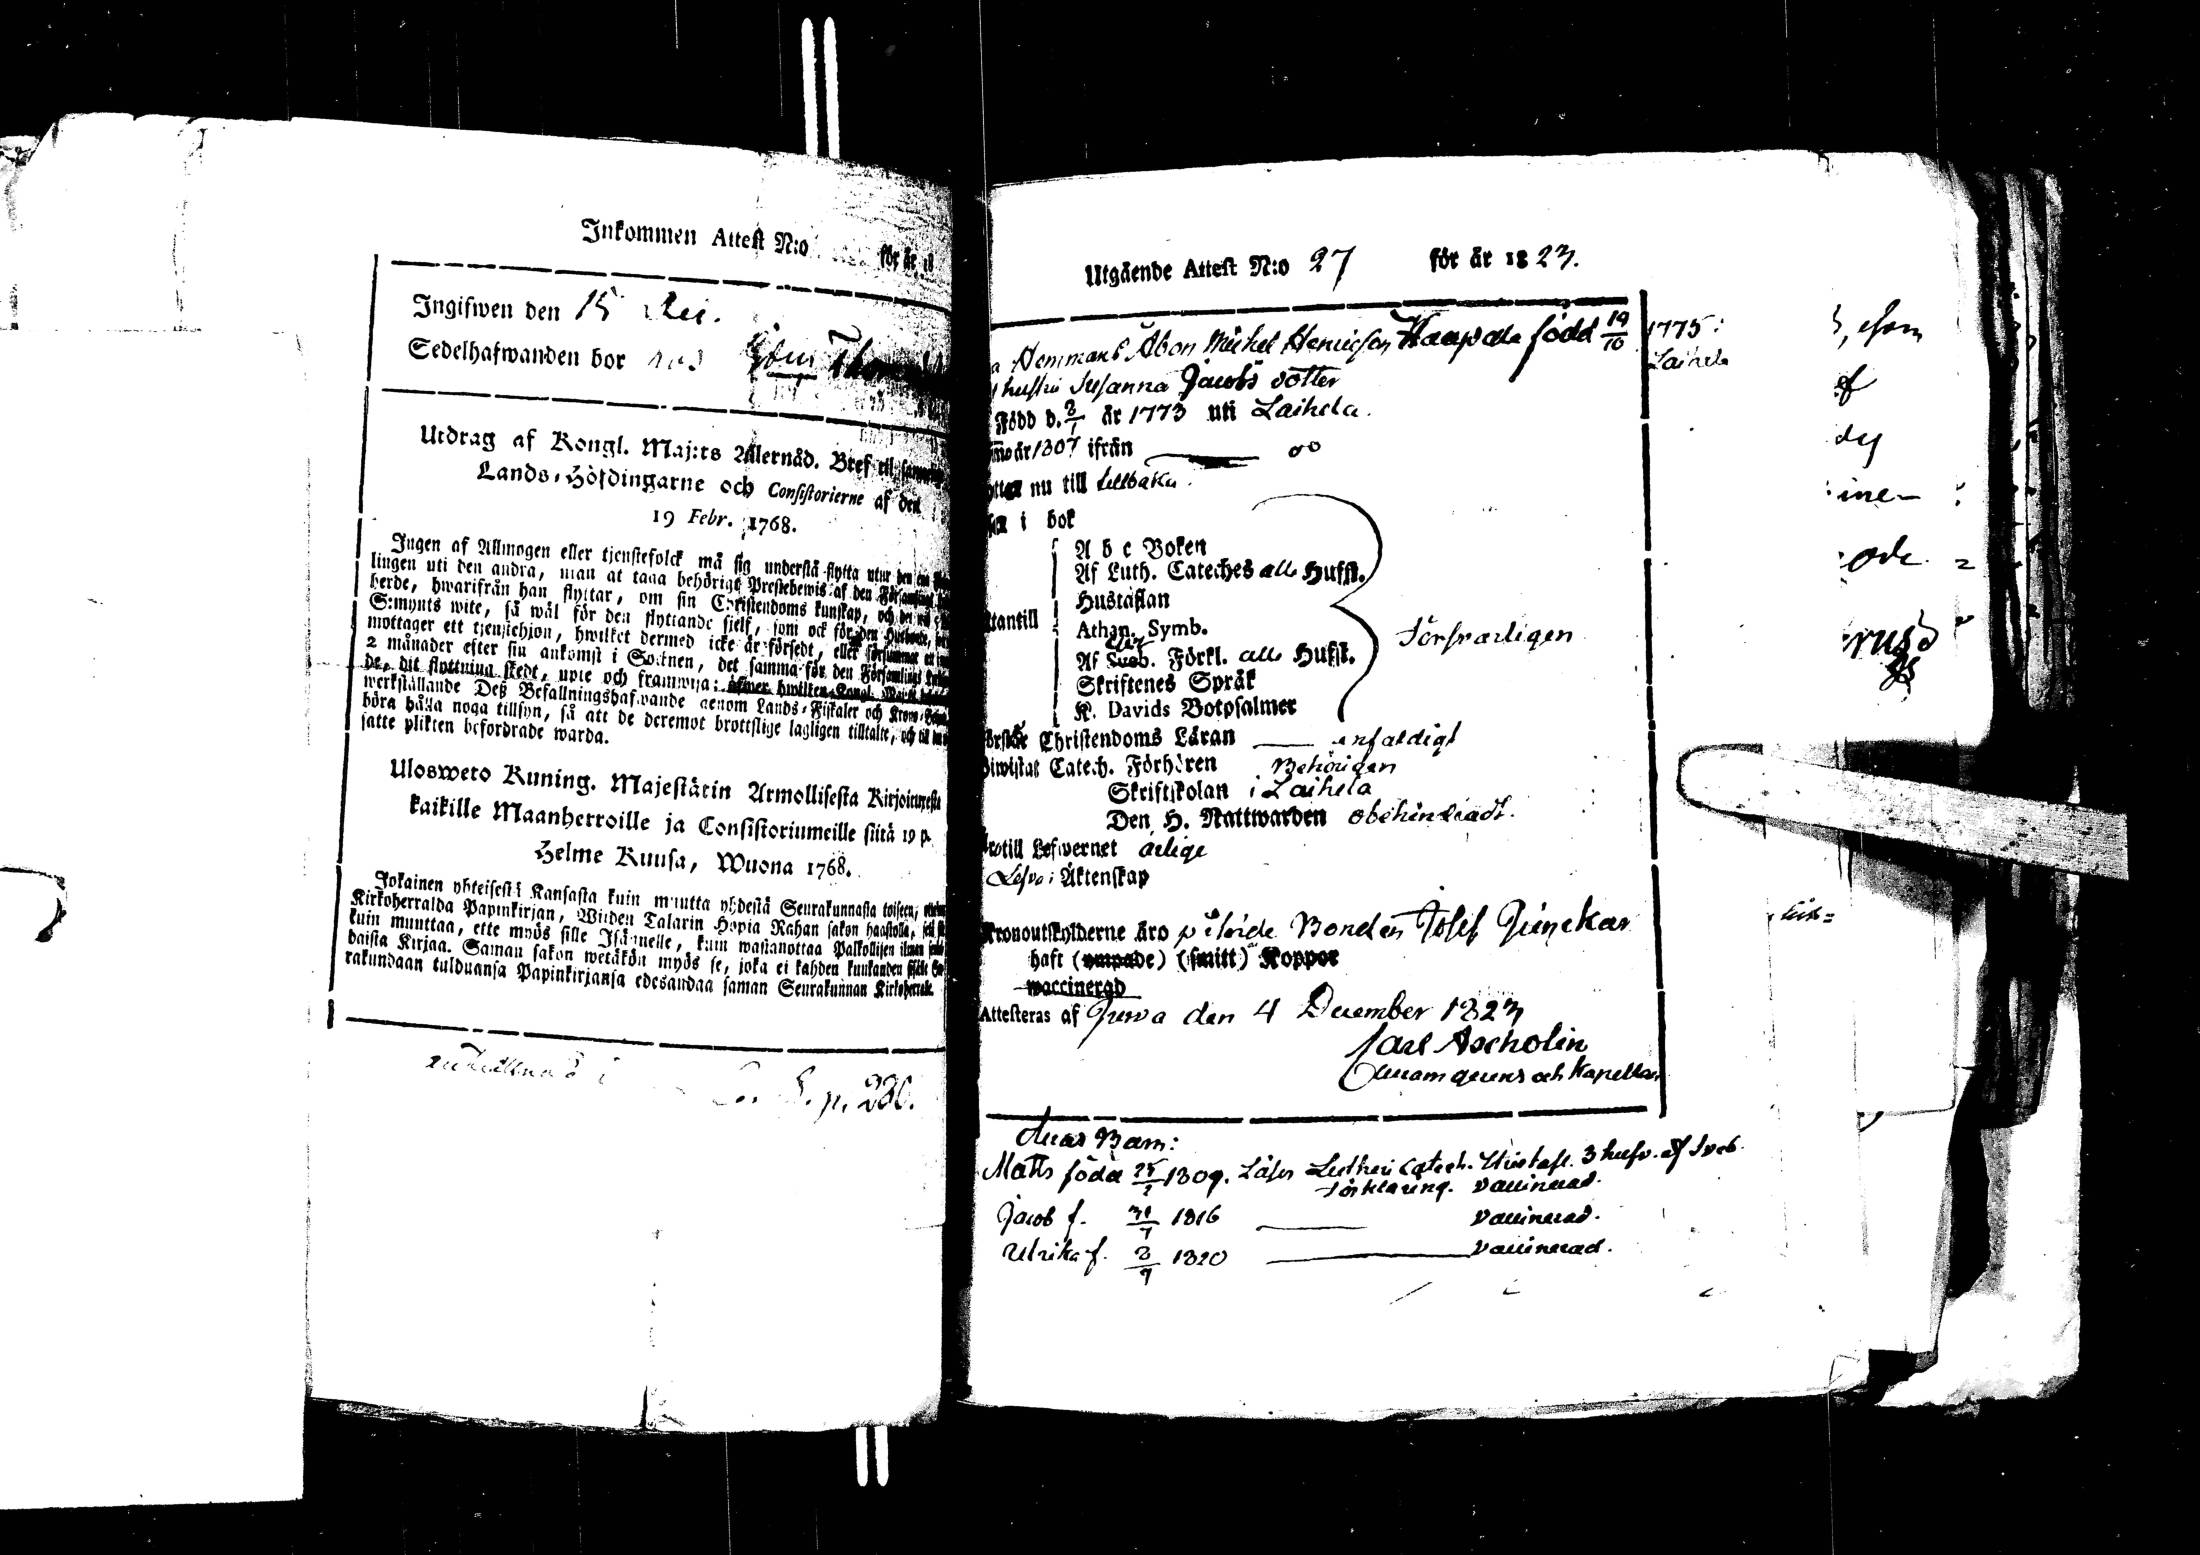 Inkommen Attest N:o för år 18
Ingifwen den 15
Sedelhafwanden bor
Utdrag af Kongl. Maj:ts Allernåd. Bref til samtelige
Lands-Höfdingarne och Consistorierne af den
19 Febr. 1768.
Ingen af Allmogen eller tjenstefolck må sig understå flytta utur den ena
lingen uti den andra, utan at taga behörigt Prestebewis af den Församlings
herde, hwarifrån han flyttar, om sin Christendoms kunskap, och det wid
S:mynts wite, så wäl för den flyttande sielf, som ock för den Husbonde,
mottager ett tjenstehjon, hwilket dermed icke är försedt, eller försummar
2 månader efter sin ankomst i Socknen, det samma för den Församlings
de, dit flyttning skedt, upte och framwisa: öfwer hwilken Kongl. Maj:ts
werkställande Deß Befallningshafwande genom Lands-Fiskaler och Krono-
böra hålla noga tillsyn, så att de deremot brottslige lagligen tilltalte, och til
satte plikten befordrade warda.
Ulosweto Kuning. Majestätin Armollisesta Kirjoituxesta
kaikille Maanherroille ja Consistoriumeille siitä 19 p.
Helme Kuusa, Wuona 1768.
Jokainen yhteisestä Kansasta kuin muutta yhdestä Seurakunnasta toiseen,
Kirkoherralda Papinkirjan, Wijden Talarin Hopia Rahan sakon haastolla,
kuin muuttaa, ette myös sille Isännelle, kuin wastanottaa Palkollisen ilman
daista Kirjaa. Saman sakon wetäkön myös se, joka ei kahden kuukauden sisälle
rakundaan tulduansa Papinkirjansa edesandaa saman Seurakunnan Kirkoherralle.
p. 280.
Utgående Attest N:o 27 för år 1823.
Hemmans Åbon Michel Henricson Haapala född 19/10 1775:
Laihela
hustru Susanna Jacobs dotter
Född d. 2/1 år 1773 uti Laihela.
år 1807 ifrån
nu till tillbaka.
i bok
A b c Boken
Af Luth. Cateches alla Hufst.
Hustaflan
utantill
Athan. Symb.
Af Sveb. Förkl. alla Hufst.
Försvarligen
Skriftenes Språk
K. Davids Botpsalmer
Christendoms Läran enfaldigt
Catech. Förhören Behörigen
Skriftskolan i Laihela
Den H. Nattwarden obehindradt.
till Lefwernet ärlige
Lefva i Äktenskap
Kronoutskylderne äro Bonden Josef
haft (ympade) (smitt) Koppor
waccinerad
Attesteras af Jurva den 4 December 1823
Carl Ascholin
och Kapellan
Deras Barn:
Matts född 25/2 1809. Läser Lutheri Catech. Hustafl. 3 hufv. af Sveb.
Förklaring. Vaccinerad.
Jacob f. 31/7 1816 Vaccinerad.
Ulrika f. 2/7 1820 Vaccinerad.